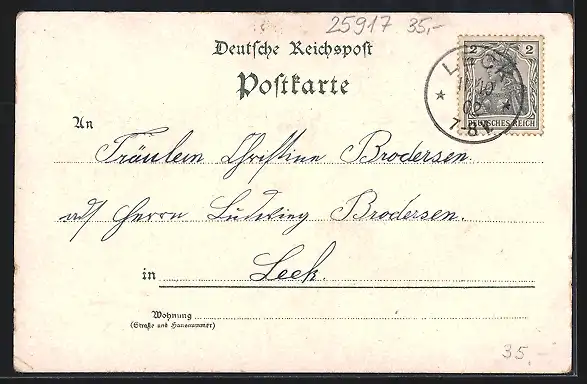 25917 35,-
Deutsche Reichspost
Postkarte
2 2
LECK
7-8V.
DEUTSCHES REICH
An
Fräulein Christine Brodersen.
ad/ Herrn Ludwig Brodersen.
in Leck.
Wohnung
(Straße und Hausnummer)
35,-